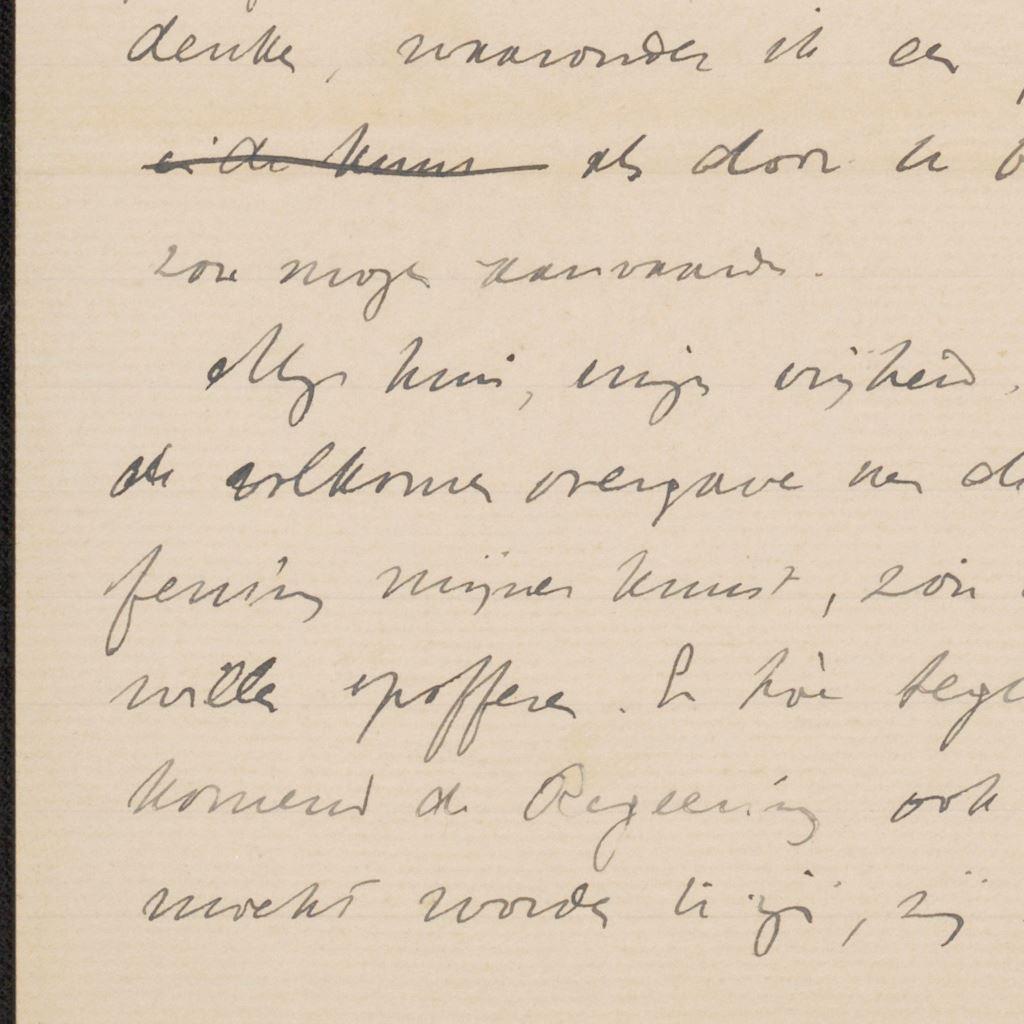 denken, waaronder ik een
in de kunst als door u
zou mogen aanvaarden.
Mijn huis, mijn vrijheid,
de volkomen overgave aan de
fening mijner kunst, zou
willen opofferen. En hoe tege
komend de Regeering ook
mocht worden te zijn, zij